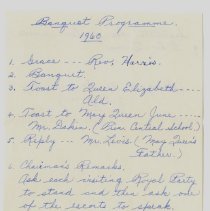 Banquet Programme.
1960
1. Grace --- Rev. Harris.
2. Banquet.
3. Toast to Queen Elizabeth ----
Ald.
4. Toast to May Queen June ----
Mr. Dakin, (Prin. Central School.)
5. Reply -- Mr. Livis. (May Queen's
Father.)
6. Chairman's Remarks,
Ask each visiting Royal Party
to stand and then ask one
of the escorts to speak.